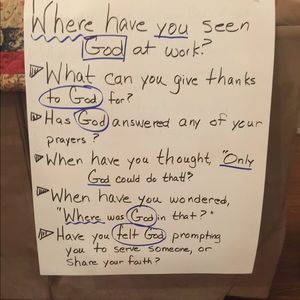 Where have you seen
God at work?
What can you give thanks
to God for?
Has God answered any of your
prayers?
When have you thought, "Only
God could do that!"?
When have you wondered,
"Where was God in that?"
Have you felt God prompting
you to serve someone, or
share your faith?